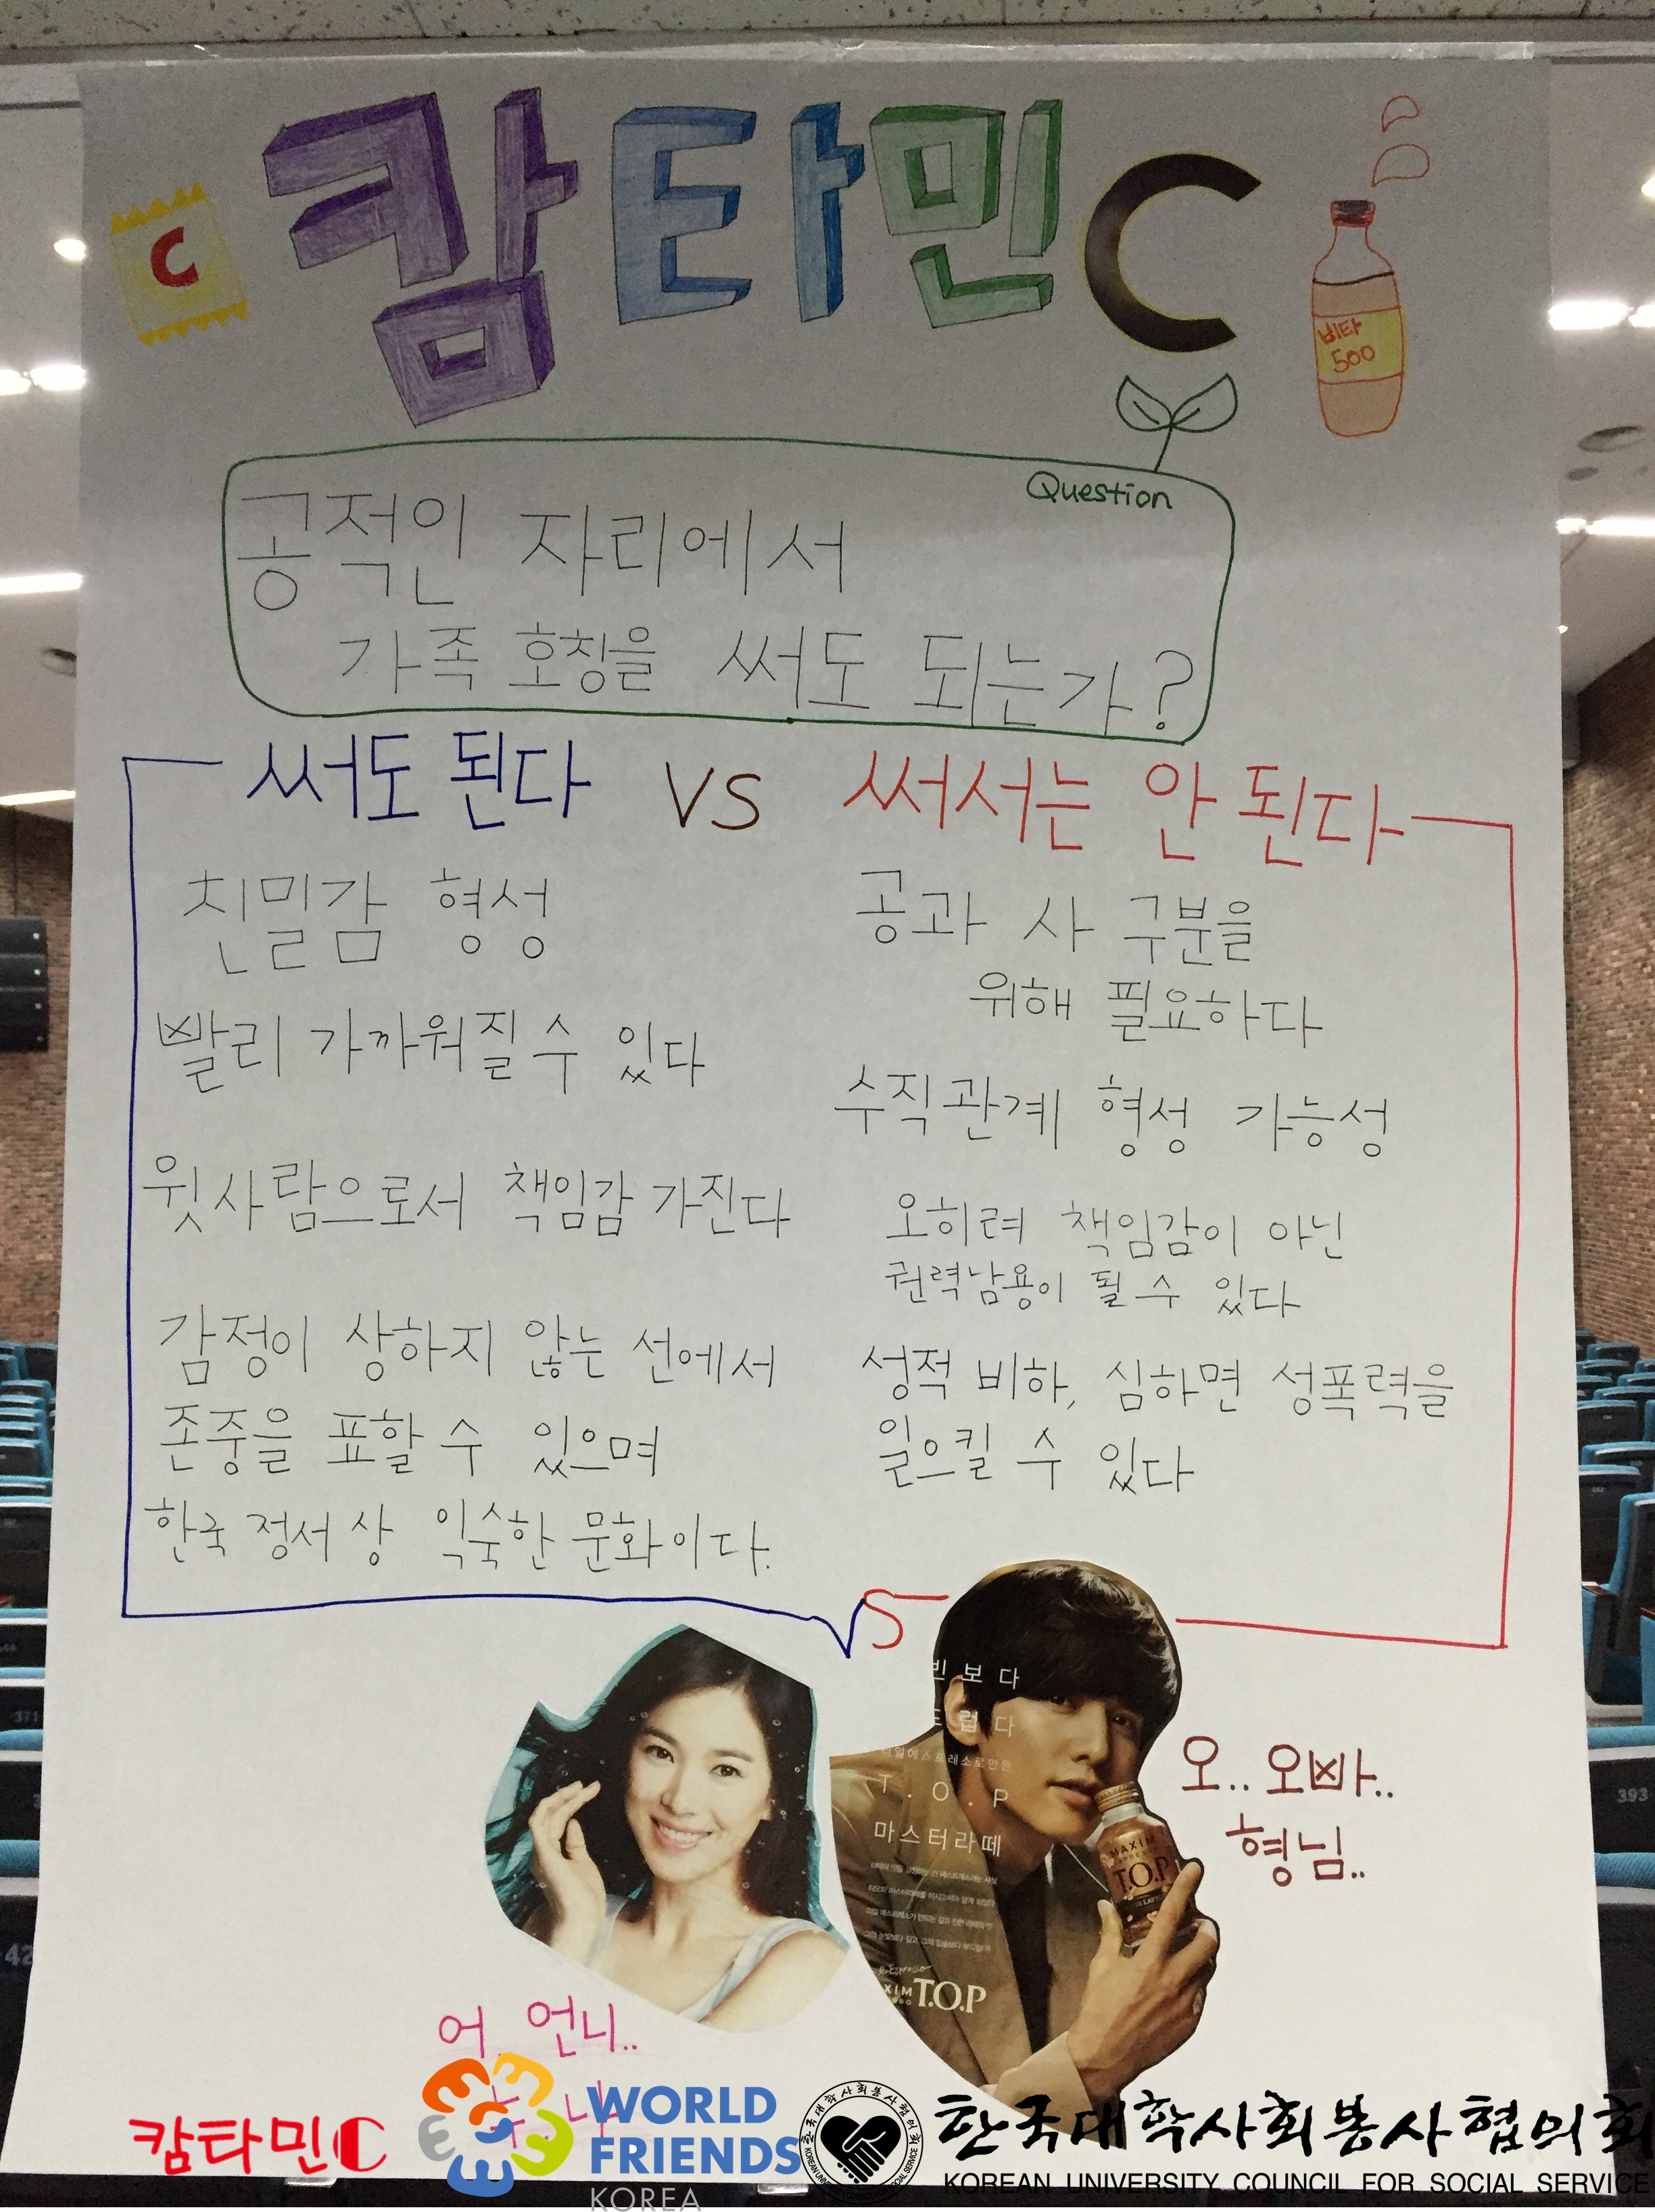 캄타민C
C
비타
500
Question
공적인 자리에서
가족 호칭을 써도 되는가?
써도 된다 VS 써서는 안 된다
친밀감 형성
빨리 가까워질 수 있다
윗사람으로서 책임감 가진다
감정이 상하지 않는 선에서
존중을 표할 수 있으며
한국 정서 상 익숙한 문화이다.
공과 사 구분을
위해 필요하다
수직관계 형성 가능성
오히려 책임감이 아닌
권력남용이 될 수 있다
성적 비하, 심하면 성폭력을
일으킬 수 있다
VS
빈보다
드럽다
리얼에스프레소로만든
T.O.P
마스터라떼
MAXIM
T.O.P
T.O.P
오.. 오빠..
형님..
어.. 언니..
캄타민C
WORLD
FRIENDS
KOREA
한국대학사회봉사협의회
KOREAN UNIVERSITY COUNCIL FOR SOCIAL SERVICE